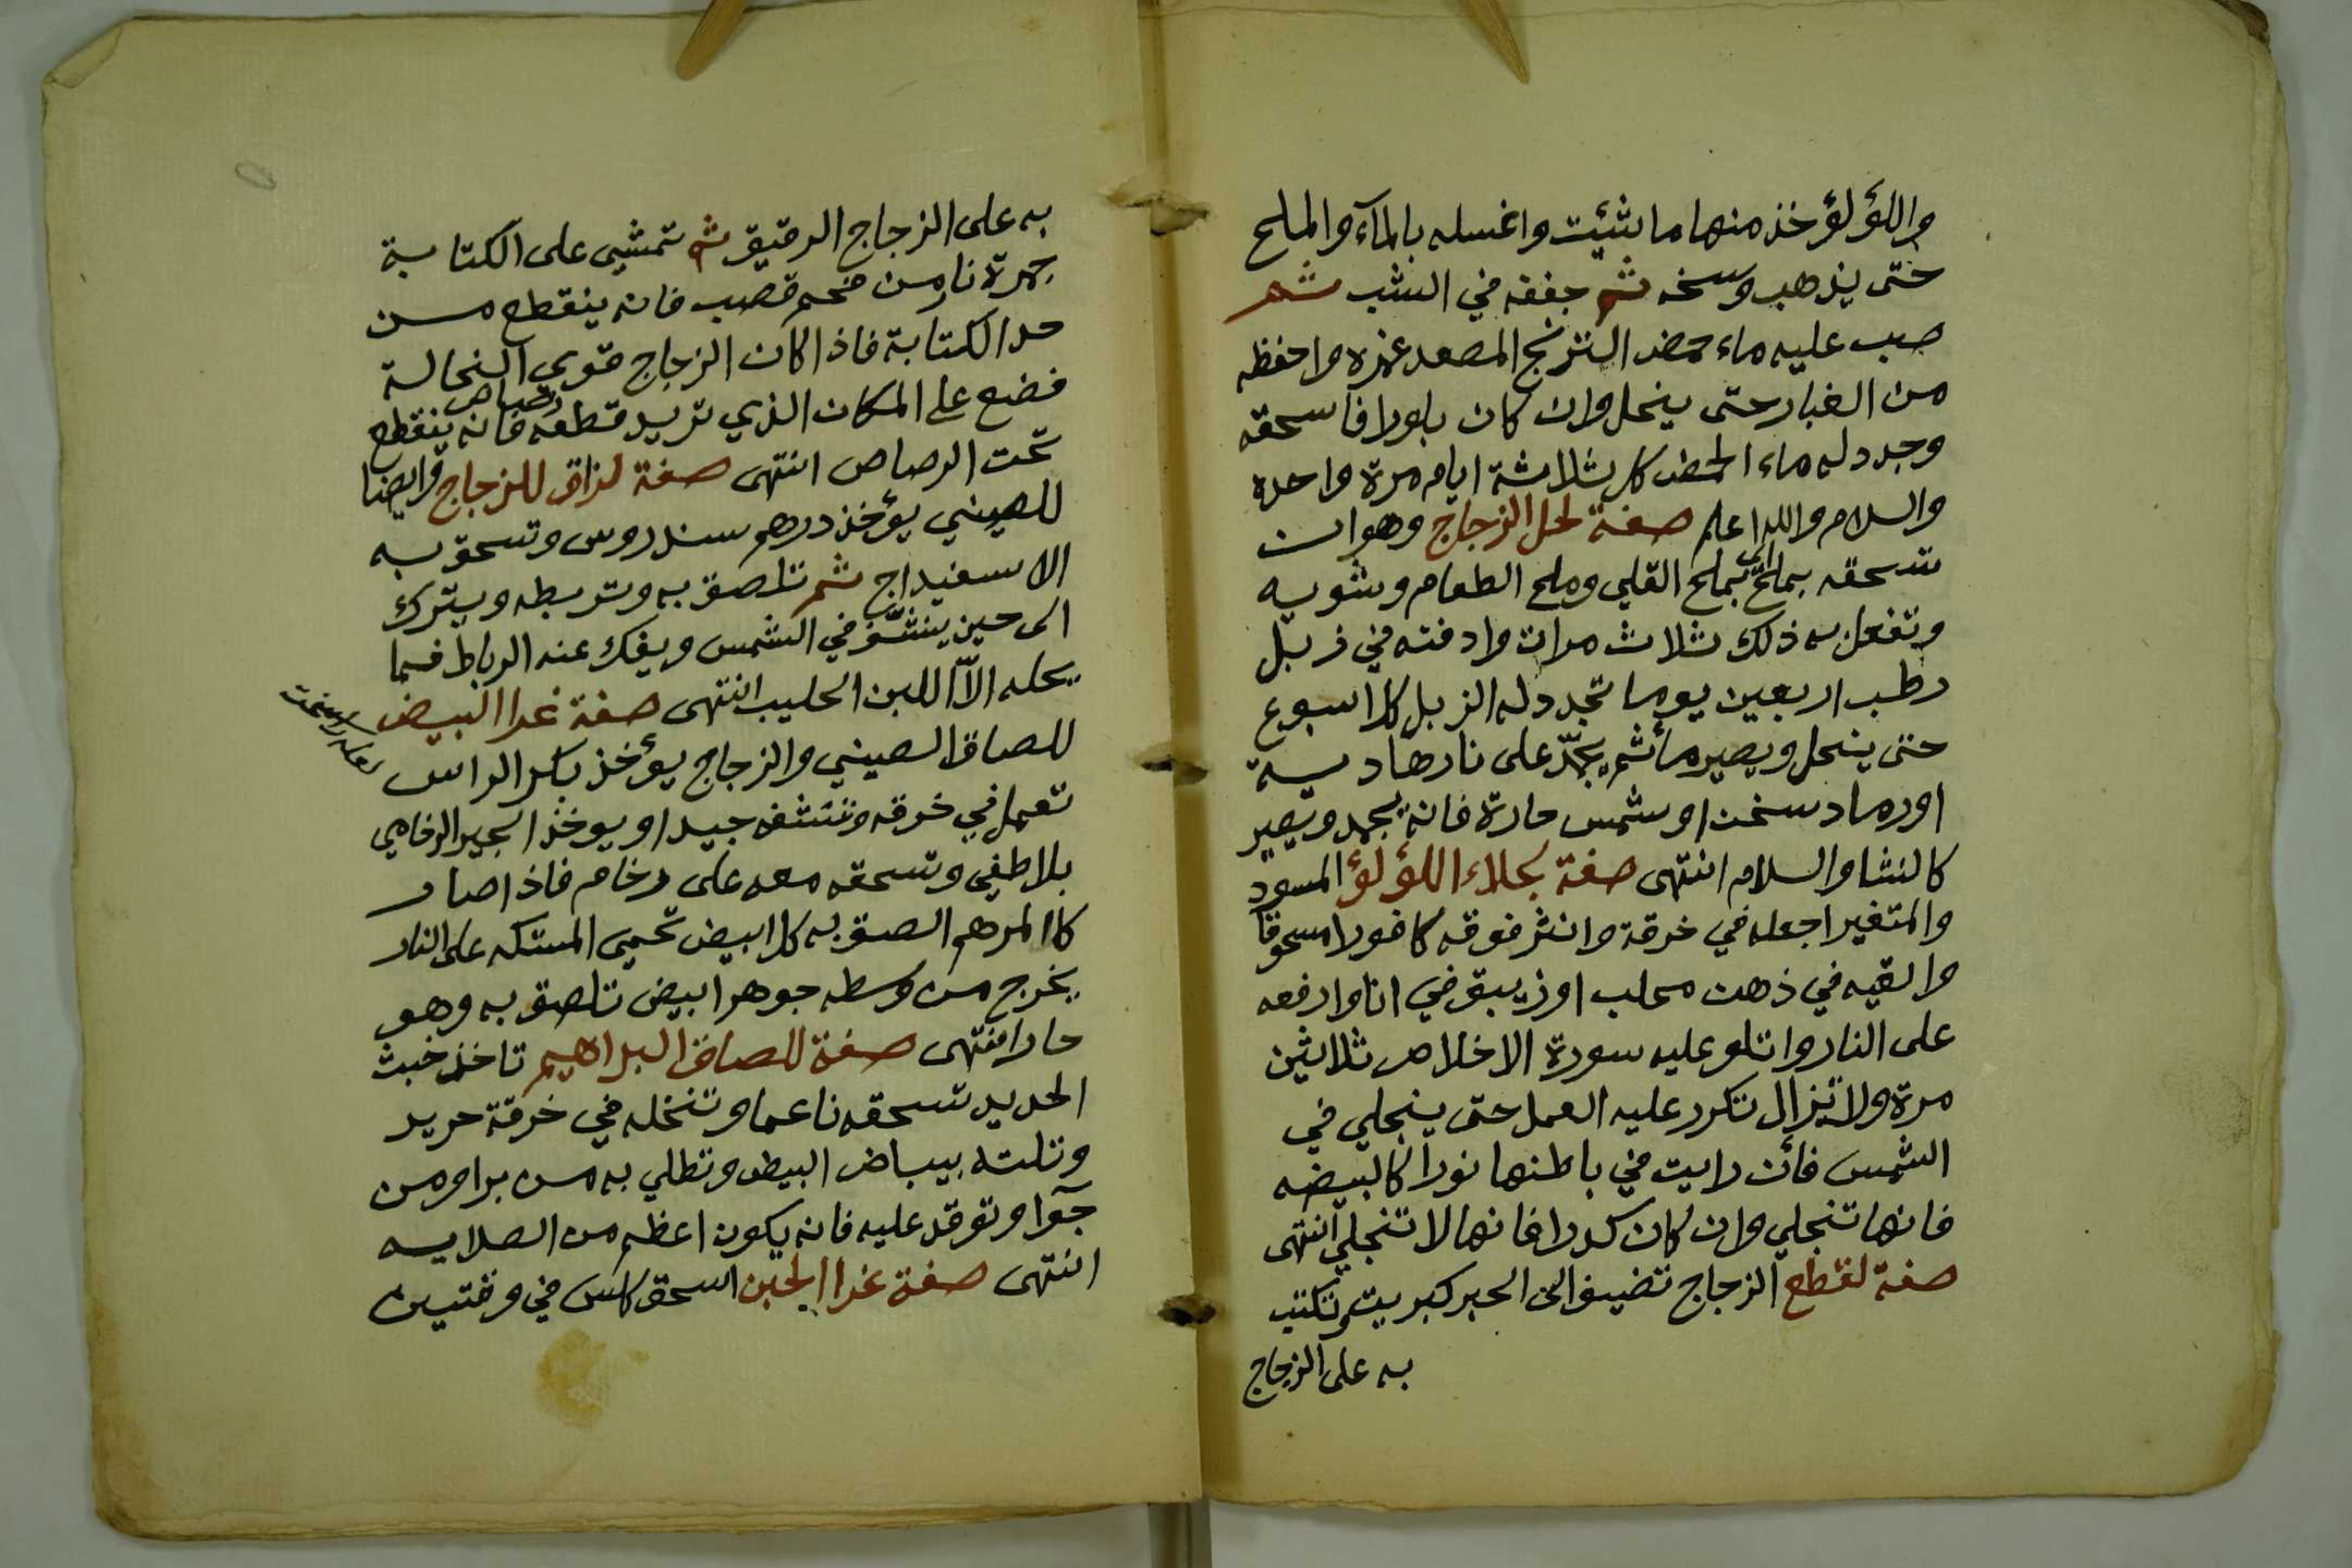 واللؤلؤ خذ منها ما شئيت واغسله بالمآء والملح
حتى يذهب وسخه ثم جففه في الشب ثم
صب عليه ماء حمض الترنج المصعد غمره واحفظه
من الغبار حتى ينحل وان كان بلورا فاسحقه
وجدد له ماء الحمض كل ثلاثة ايام مرة واحدة
والسلام والله اعلم صفة لحل الزجاج وهو ان
تسحقه بملح اى بملح القلي وملح الطعام وشويه
وتفعل به ذلك ثلاث مرات وادفنه في زبل
رطب اربعين يوما تجدد له الزبل كل اسبوع
حتى ينحل ويصير مأ ثم يجمد على نار هادية
او رماد سخن او شمس حارة فانه يجمد ويصير
كالنشا والسلام انتهى صفة بجلاء اللؤلؤ المسود
والمتغير اجعله في خرقة وانثر فوقه كافورا مسحوقا
والقيه في ذهن محلب او زيبق في انا وارفعه
على النار واتلو عليه سورة الاخلاص ثلاثين
مرة ولا تزال تكرر عليه العمل حتى ينجلي في
الشمس فأن رايت في باطنها نورا كالبيضه
فانها تنجلي وان كان كدرا فانها لا تنجلي انتهى
صفة لقطع الزجاج تضيف الى الحبر كبريت وتكتب
به على الزجاج
به على الزجاج الرقيق ثم تمشي على الكتابة
جمرة نار من فحم قصب فانه ينقطع من
حد الكتابة فاذا كان الزجاج قوي النحالة
فضع على المكان الذي تريد قطعه رصاص فانه ينقطع
تحت الرصاص انتهى صفة لزاق للزجاج وايضا
للصيني يؤخذ درهم سندروس وتسحق به
الاسفيداج ثم تلصق به وتربطه ويترك
الى حين ينشّف في الشمس ويفك عنه الرباط فما
يحله الاّ اللبن الحليب انتهى صفة غرا البيض
للصاق الصيني والزجاج يؤخذ بكر الراس
تعمل في خرقه وتنشفه جيدا ويوخذ الجير الرخامي
بلا طفي وتسحقه معه على رخام فاذا صار
كاالمرهم الصق به كل ابيض تحمى المستكه على النار
يخرج من وسطه جوهر ابيض تلصق به وهو
حار انتهى صفة للصاق البراهيم تاخذ خبث
الحديد تسحقه ناعما وتنخله في خرقة حرير
وتلته ببياض البيض وتطلي به من برا ومن
جوّا وتوقد عليه فانه يكون اعظم من الصلايه
انتهى صفة غرا الجبن اسحق كلس في وقتين